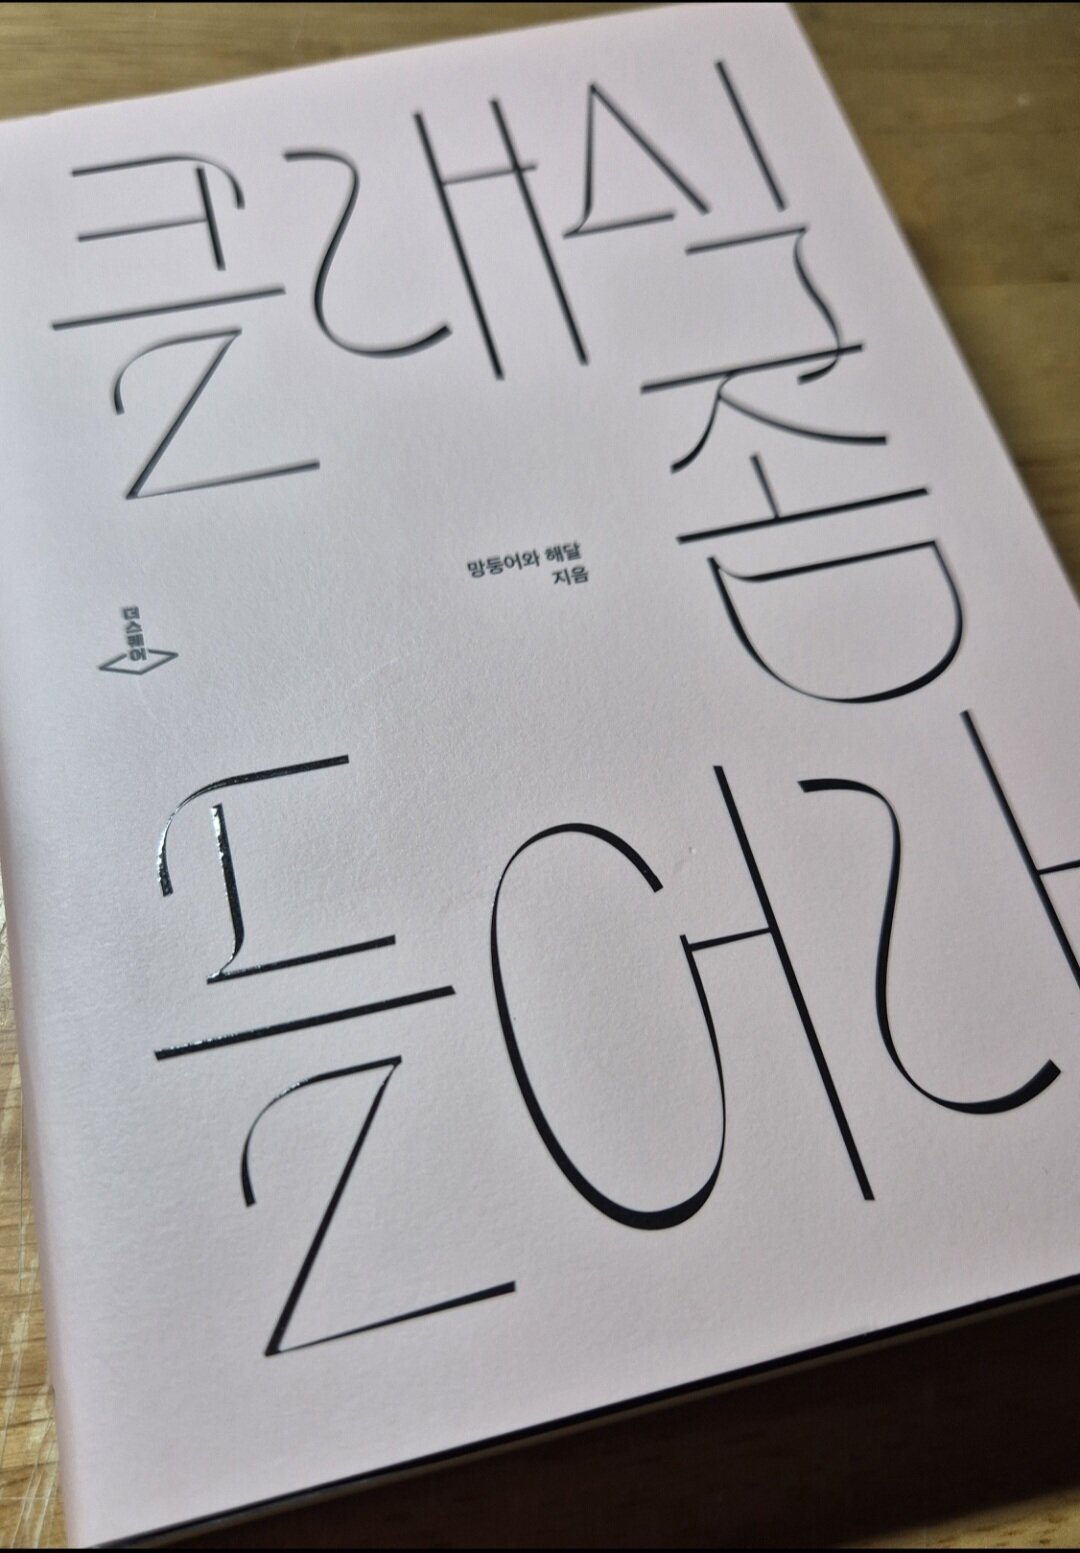 클래식
좀
망둥어와 해달
지음
더스퀘어
들어라